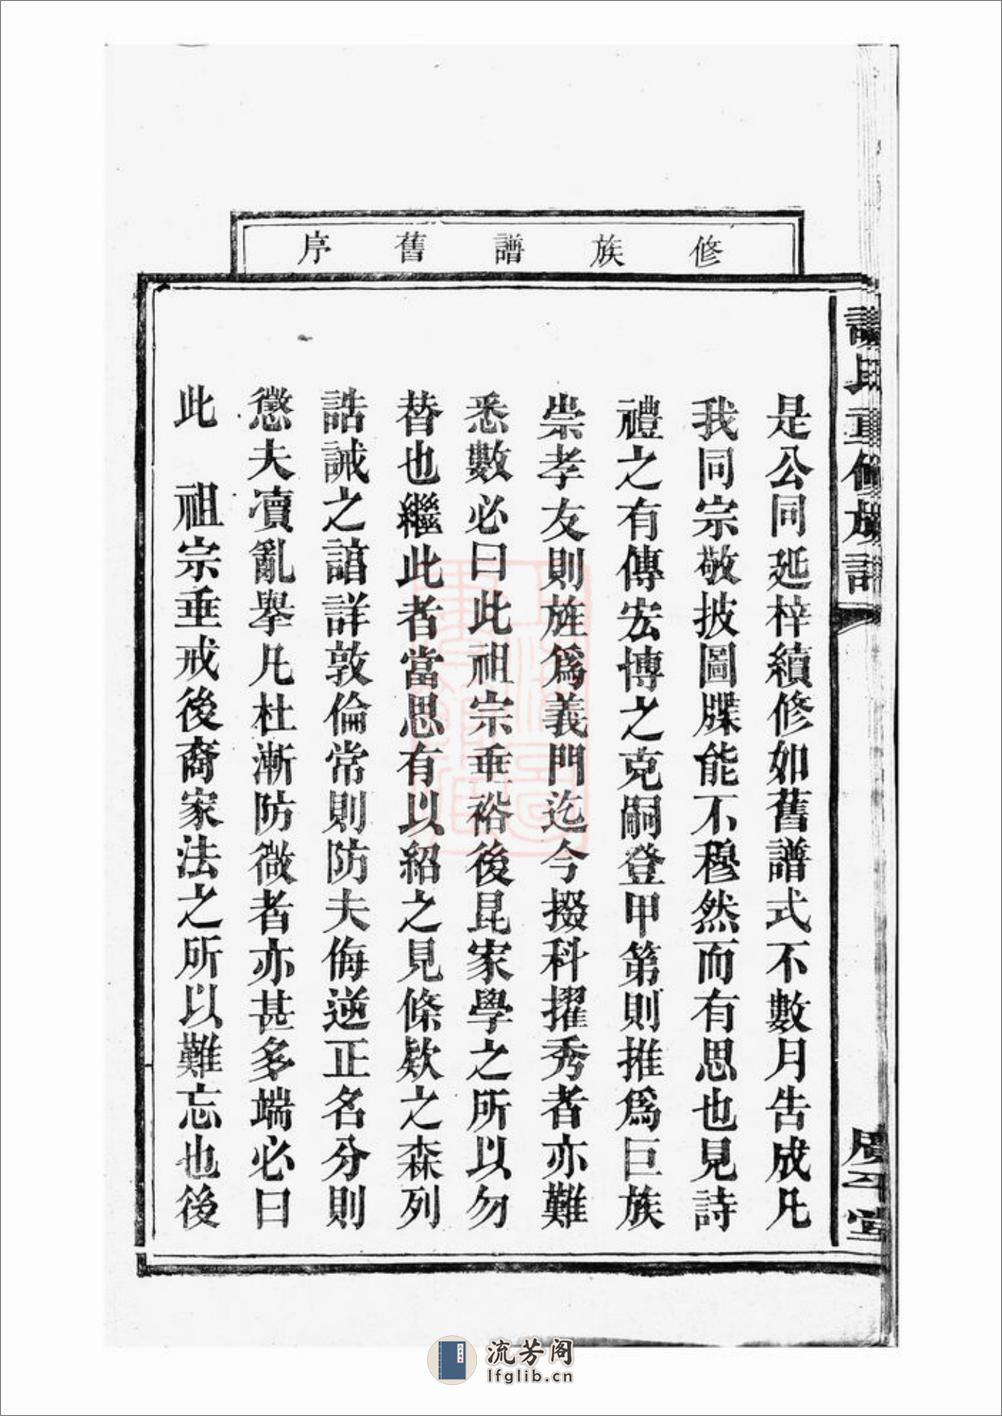 修族譜舊序
是公同延梓續修如舊譜式不數月告成凡
我同宗敬披圖牒能不穆然而有思也見詩
禮之有傳宏博之克嗣登甲第則推爲巨族
崇孝友則旌爲義門迄今掇科擢秀者亦難
悉數必曰此祖宗垂裕後昆家學之所以勿
替也繼此者當思有以紹之見條欵之森列
誥誡之諳詳敦倫常則防夫侮逆正名分則
懲夫賣亂舉凡杜漸防微者亦甚多端必曰
此 祖宗垂戒後裔家法之所以難忘也後
氏重修族譜
堂
流芳阁
lfglib.cn